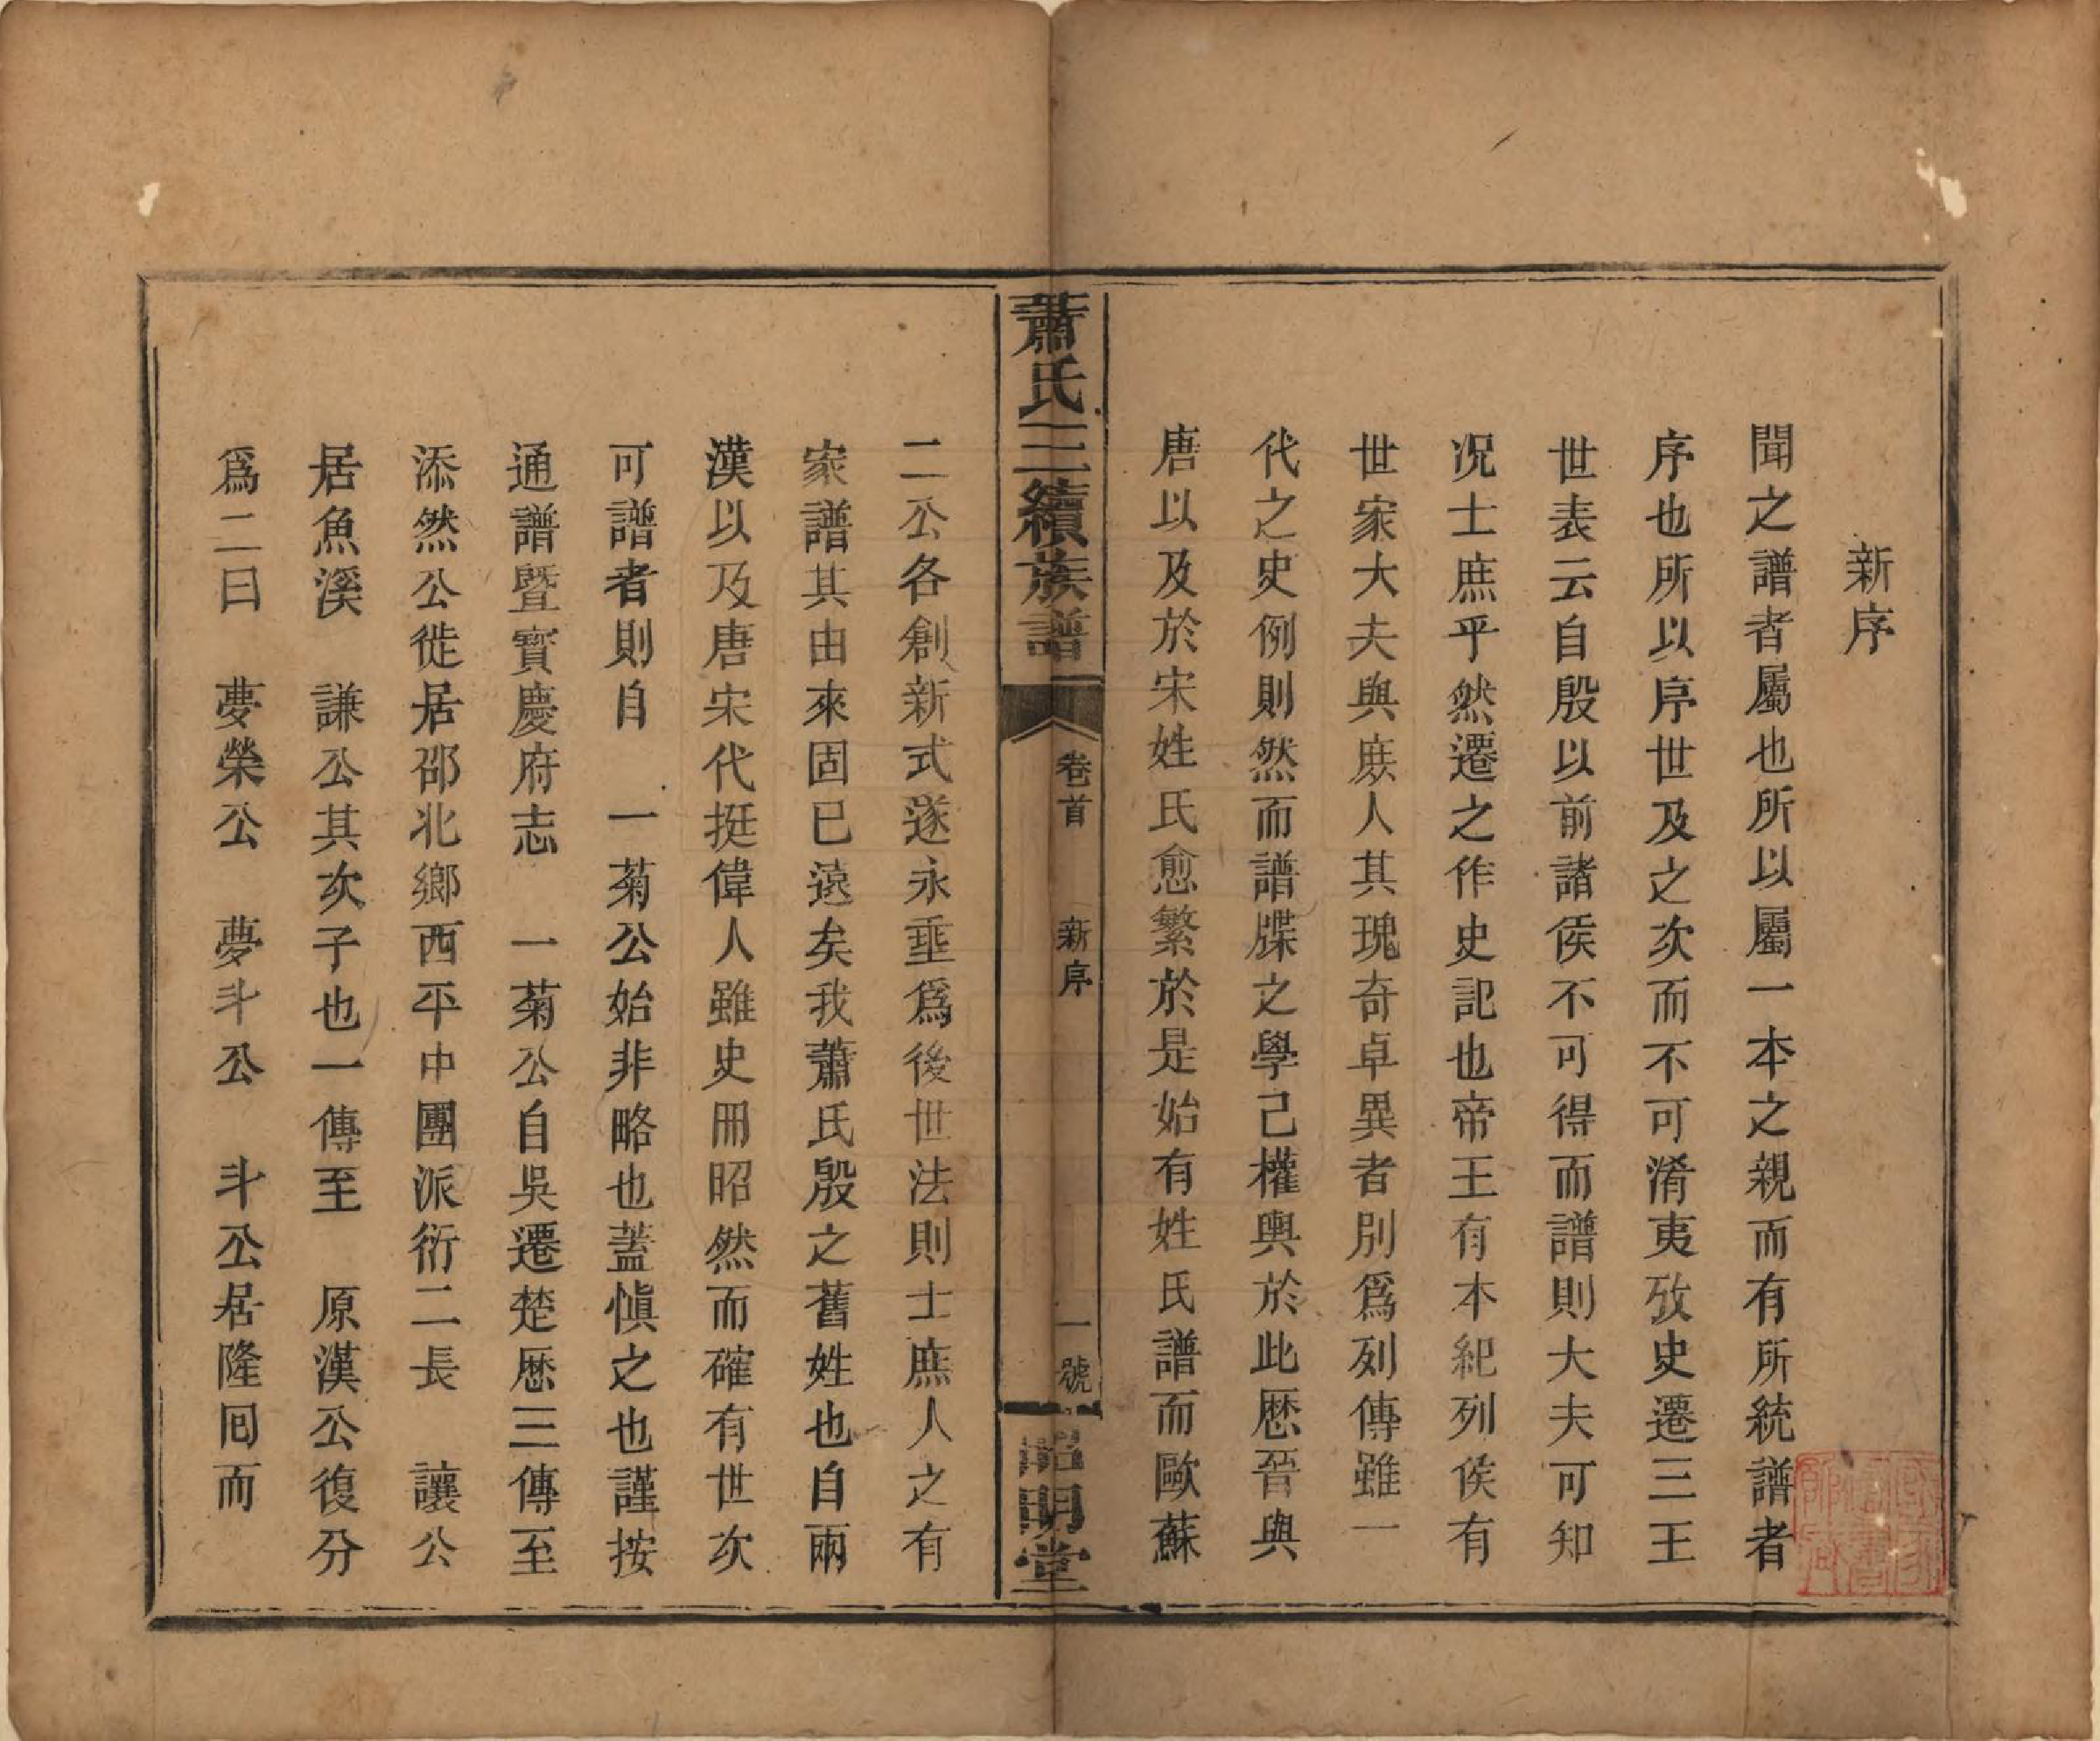 新序
聞之譜者屬也所以屬一本之親而有所統譜者
序也所以序世及之次而不可淆夷攷史遷三王
世表云自殷以前諸侯不可得而譜則大夫可知
況士庶乎然遷之作史記也帝王有本紀列侯有
世家大夫與庶人其瑰奇卓異者別爲列傳雖一
代之史例則然而譜牒之學己權輿於此歷晉與
唐以及於宋姓氏愈繁於是始有姓氏譜而歐蘇
蕭氏三續族譜
卷首
新序
一號
昭明堂
二公各創新式遂永垂爲後世法則士庶人之有
家譜其由來固已遠矣我蕭氏殷之舊姓也自兩
漢以及唐宋代挺偉人雖史冊昭然而確有世次
可譜者則自 一菊公始非略也蓋愼之也謹按
通譜暨寶慶府志 一菊公自吳遷楚歷三傳至
添然公徙居邵北鄉西平中團派衍二長 讓公
居魚溪 謙公其次子也一傳至 原漢公復分
爲二曰 夢榮公 夢斗公 斗公居隆回而